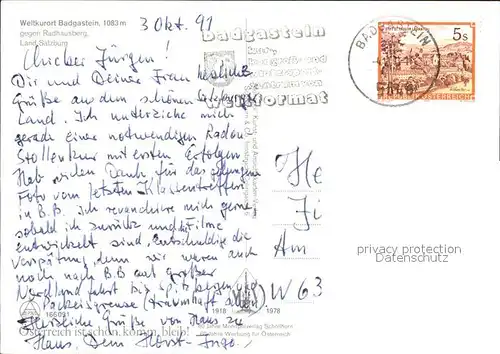 Weltkurort Badgastein, 1083 m
gegen Radhausberg,
Land Salzburg
3 Okt. 91
Badgastein
Weltformat
BADGASTEIN
5640
5 S
REPUBLIK ÖSTERREICH
Jürgen!
Dir und Deiner Frau herzliche
Grüße aus dem schönen Salzburger
Land. Ich unterziehe mich
gerade einer notwendigen Radon
Stollenkur mit ersten Erfolgen
Hab vielen Dank, für das gelungene
Foto vom letzten Klassentreffen
in B.B. ich revanchiere mich gerne
sobald ich zurück und Filme
entwickelt sind, entschuldige die
Verspätung, denn wir waren auch
noch nach B.B. auf großer
Nordlandfahrt bis Spitzbergen
Packeisgrenze (traumhaft schön
Herzliche Grüße von Haus zu
Haus. Dein Horst-Ingo!
He
Ji
Am
W 63
privacy protection
Datenschutz
166091
1918
1978
60 Jahre
Österreich ist schön, komm bleib!